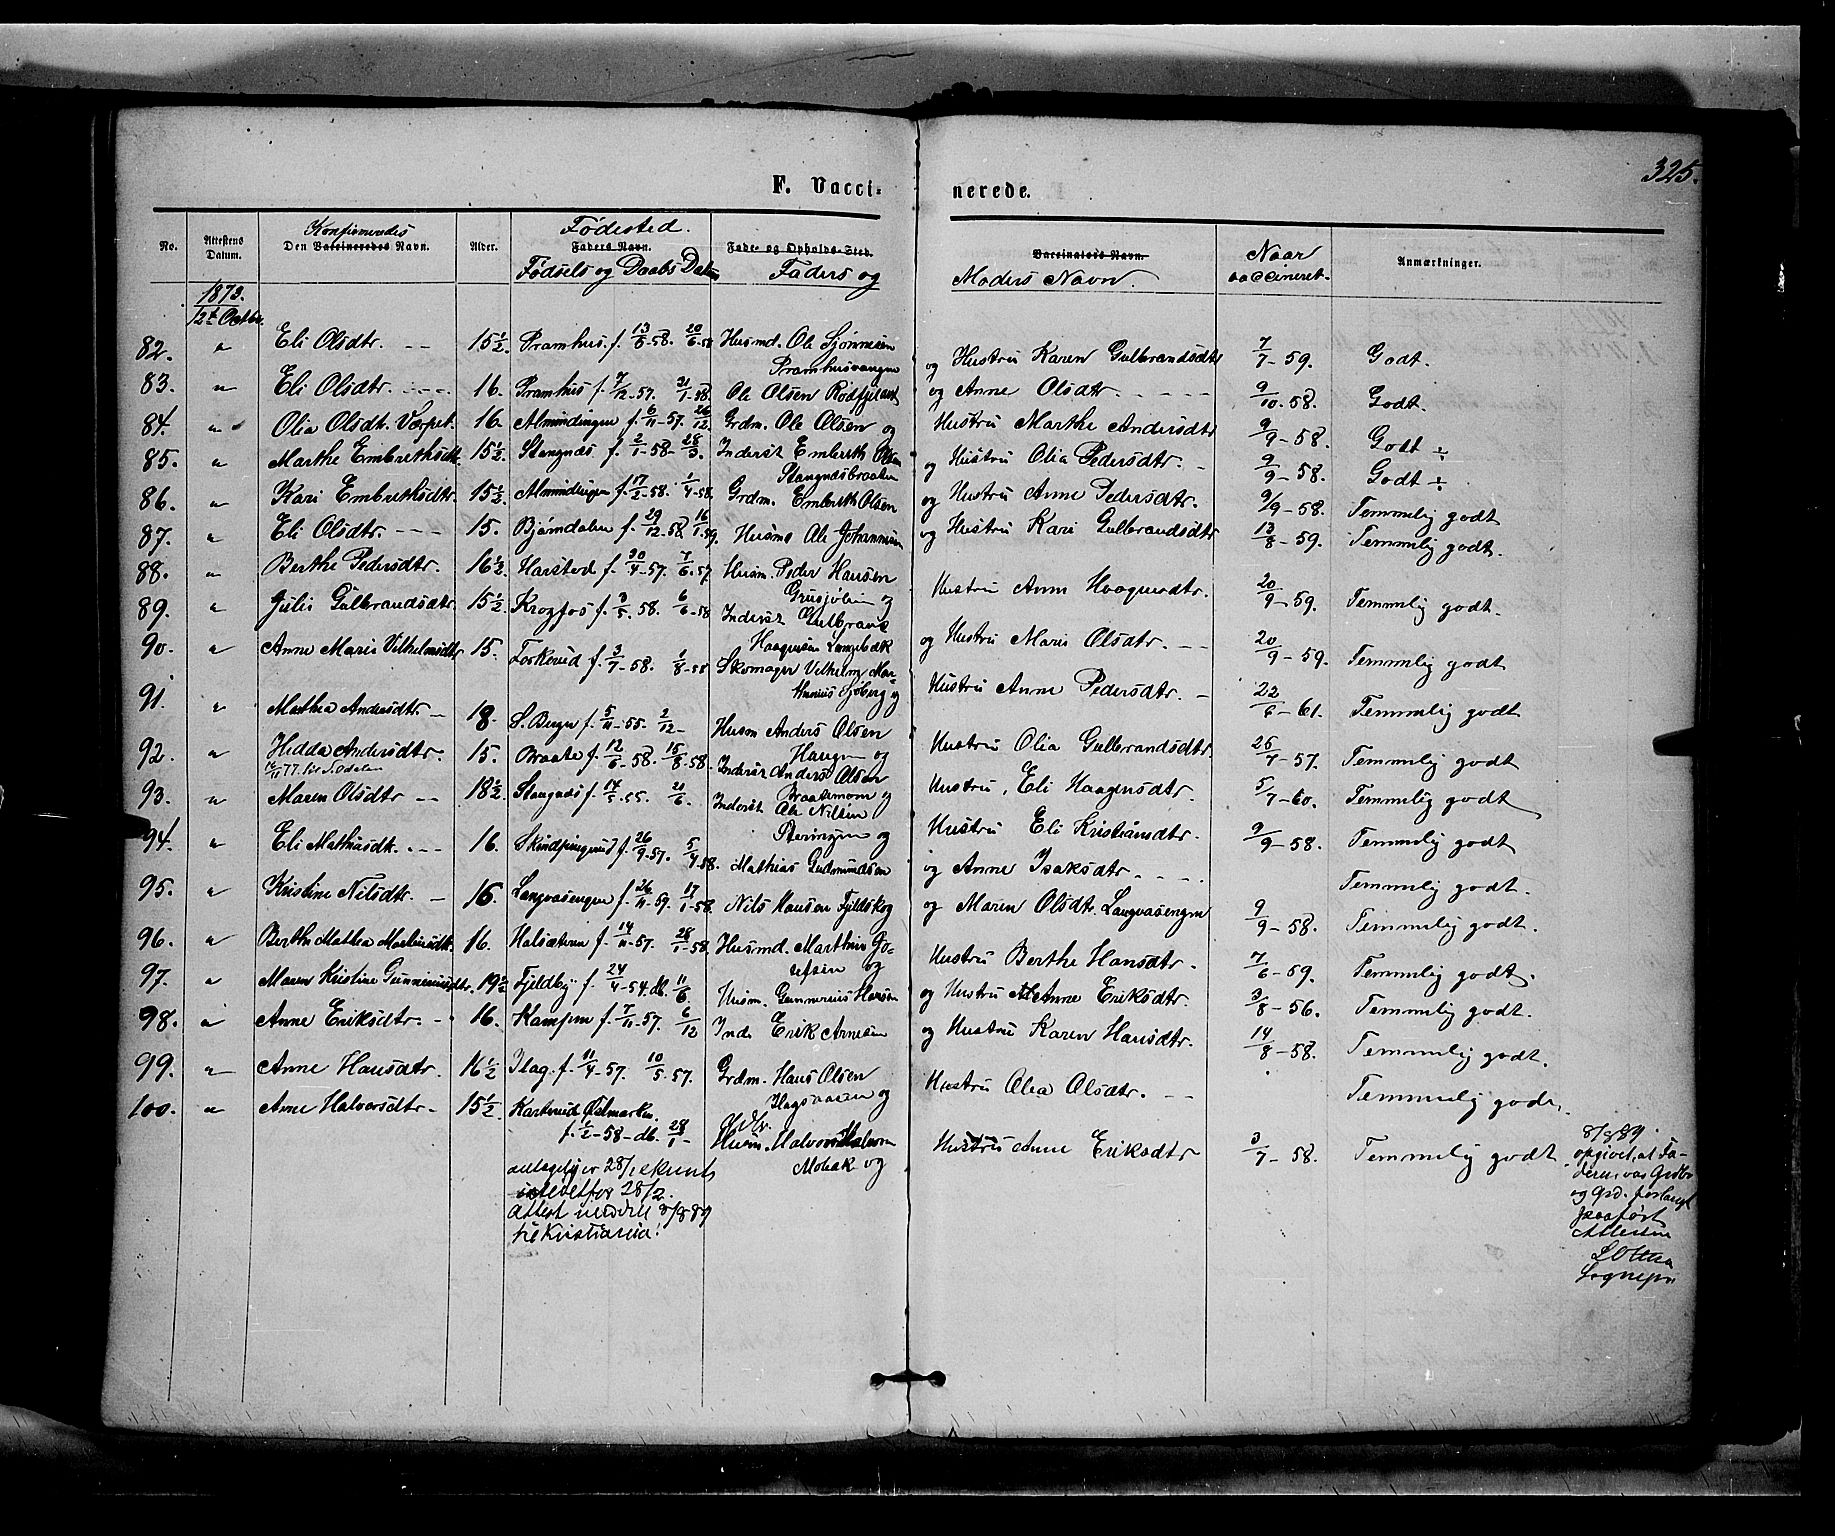 325.
F. Vacci- nerede.
No. Attestens Datum. Konfirmandes Den Vaccineredes Navn. Alder. Fødested. Faders Navn. Fødsels og Daabs Datum Føde- og Opholds-Sted. Faders og Vaccinators Navn. Moders Navn. Naar vaccineret. Anmærkninger.
1873.
12te Octbr.
82. " Eli Olsdtr. 15 1/2. Pramhus. f. 13/6-58. 20/6-58 Husmd. Ole
Pramhusvangen og Hustru Karen Gulbrandsdtr 7/7-59. Godt.
83. " Eli Olsdtr. 16. Pramhus f. 7/12-57. 21/1-58. Ole Olsen og Anne Olsdtr. 9/10-58. Godt.
84. " Olia Olsdtr. 16. Almindingen f. 6/11-57. 26/12 Grdm. Ole Olsen og Hustru Marthe Andersdtr 9/9-58. Godt ÷
85. " Marthe Embrethsdtr. 15 1/2. Stangnæs f. 2/1-58- 28/3. Inderst Embreth Olsen
Stangnæsbraaten og Hustru Olia Pedersdtr. 9/9-58. Godt ÷
86. " Kari Embrethsdtr. 15 1/2. Almindingen f. 17/2-58. 1/4-58. Grdm. Embreth Olsen og Hustru Anne Pedersdtr. 9/9-58. Temmelig godt
87. " Eli Olsdtr. 15. Bjørndalen f. 29/12-58. 16/1-59. Husm. Ole Johannesen og Hustru Kari Gulbrandsdtr 13/8-59. Temmelig godt.
88. " Berthe Pedersdtr. 16 1/2. Harstad f. 30/4-57. 7/6-57 Husm. Peder Hansen
og Hustru Anne Haagensdtr. 20/9-59. Temmelig godt.
89. " Julie Gulbrandsdtr. 15 1/2. Krogfos f. 3/5-58. 6/6-58 Inderst Gulbrand
Haagensen og Hustru Marie Olsdtr. 20/9-59. Temmelig godt
90. " Anne Marie Vilhelmsdtr. 15. f. 3/7-58. 1/8-58 Skomager Vilhelm
Sjøberg og Hustru Anne Pedersdtr. 22/6-61. Temmelig godt
91. " Mathea Andersdtr. 18. S. Berger f. 5/11-55. 2/12- Husm Anders Olsen
Haugen og Hustru Olia Gulbrandsdtr. 26/7-57. Temmelig godt
92. " Hedda Andersdtr. 15. Braate f. 12/6-58. 15/8-58. Inderst Anders Olsen
Braatemoen og Hustru, Eli Haagensdtr. 5/7-60. Temmelig godt
77. til S. Odalen
93. " Maren Olsdtr 18 1/2. Stangnæs f. 14/5-55. 21/6. Inderst Ole Nilsen
og Hustru Eli Kristiansdtr. 9/9-58. Temmelig godt
94. " Eli Mathiasdtr. 16. f. 26/9-57. 5/4-58. Mathias Gudmundsen og Anne Isaksdtr. Temmelig godt.
95. " Kristine Nilsdtr. 16. Langvasengen f. 26/11-59. 17/1-58. Nils Hansen Fjeldskog og Maren Olsdtr. Langvasengen 9/9-58. Temmelig godt.
96. " Berthe Mathea Martinusdtr. 16. Halsæteren f. 14/11-57. 28/1-58. Husmd. Marthin
og Hustru Berthe Hansdtr. 7/6-59. Temmelig godt.
97. " Maren Kristine 19 1/2 Fjeldby f. 24/4-54. db. 11/6. Husm. Gunnerius Hansen og Hustru Anne Eriksdtr. 3/8-56. Temmelig godt.
98. " Anne Eriksdtr. 16. Kampen f. 7/11-57. 6/12 Ind. Erik Arnesen og Hustru Karen Hansdtr. 14/8-58. Temmelig godt.
99. " Anne Hansdtr. 16 1/2 Ilag. f. 11/4-57. 10/5-57. Grdm. Hans Olsen
Ilagsvasen og Hustru Olea Olsdtr. Temmelig godt.
100. " Anne Halvorsdtr. 15 1/2 Karterud Østmarken.
f. 1/2-58- db. 28/1- Husm. Halvor Halvorsen
Mobak og Hustru Anne Eriksdtr 3/7-58. Temmelig godt
antagelig er 28/1 skrevet
istedetfor 28/2.
Attest meddelt 8/8 89
til Kristiania!
8/8 89.
opgivet, at Fa-
deren var
og
Attesten
Sognepr